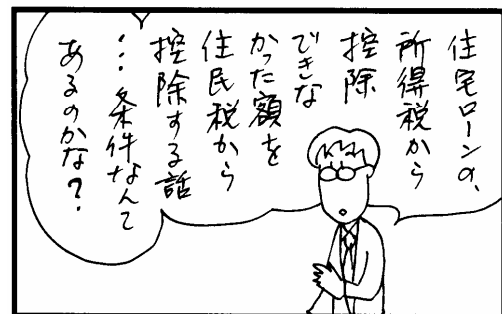 住宅ローンの、
所得税から
控除
できな
かった額を
住民税から
控除する話
…条件なんて
あるのかな？